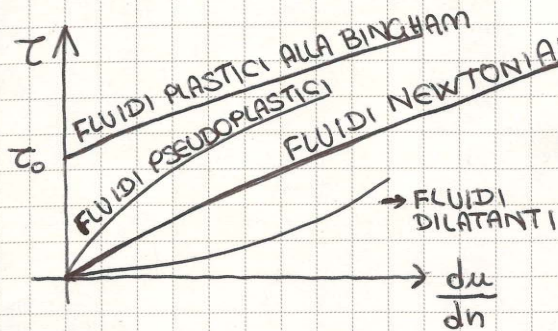 τ
FLUIDI PLASTICI ALLA BINGHAM
τ₀
FLUIDI PSEUDOPLASTICI
FLUIDI NEWTONIA
FLUIDI
DILATANTI
du
dn